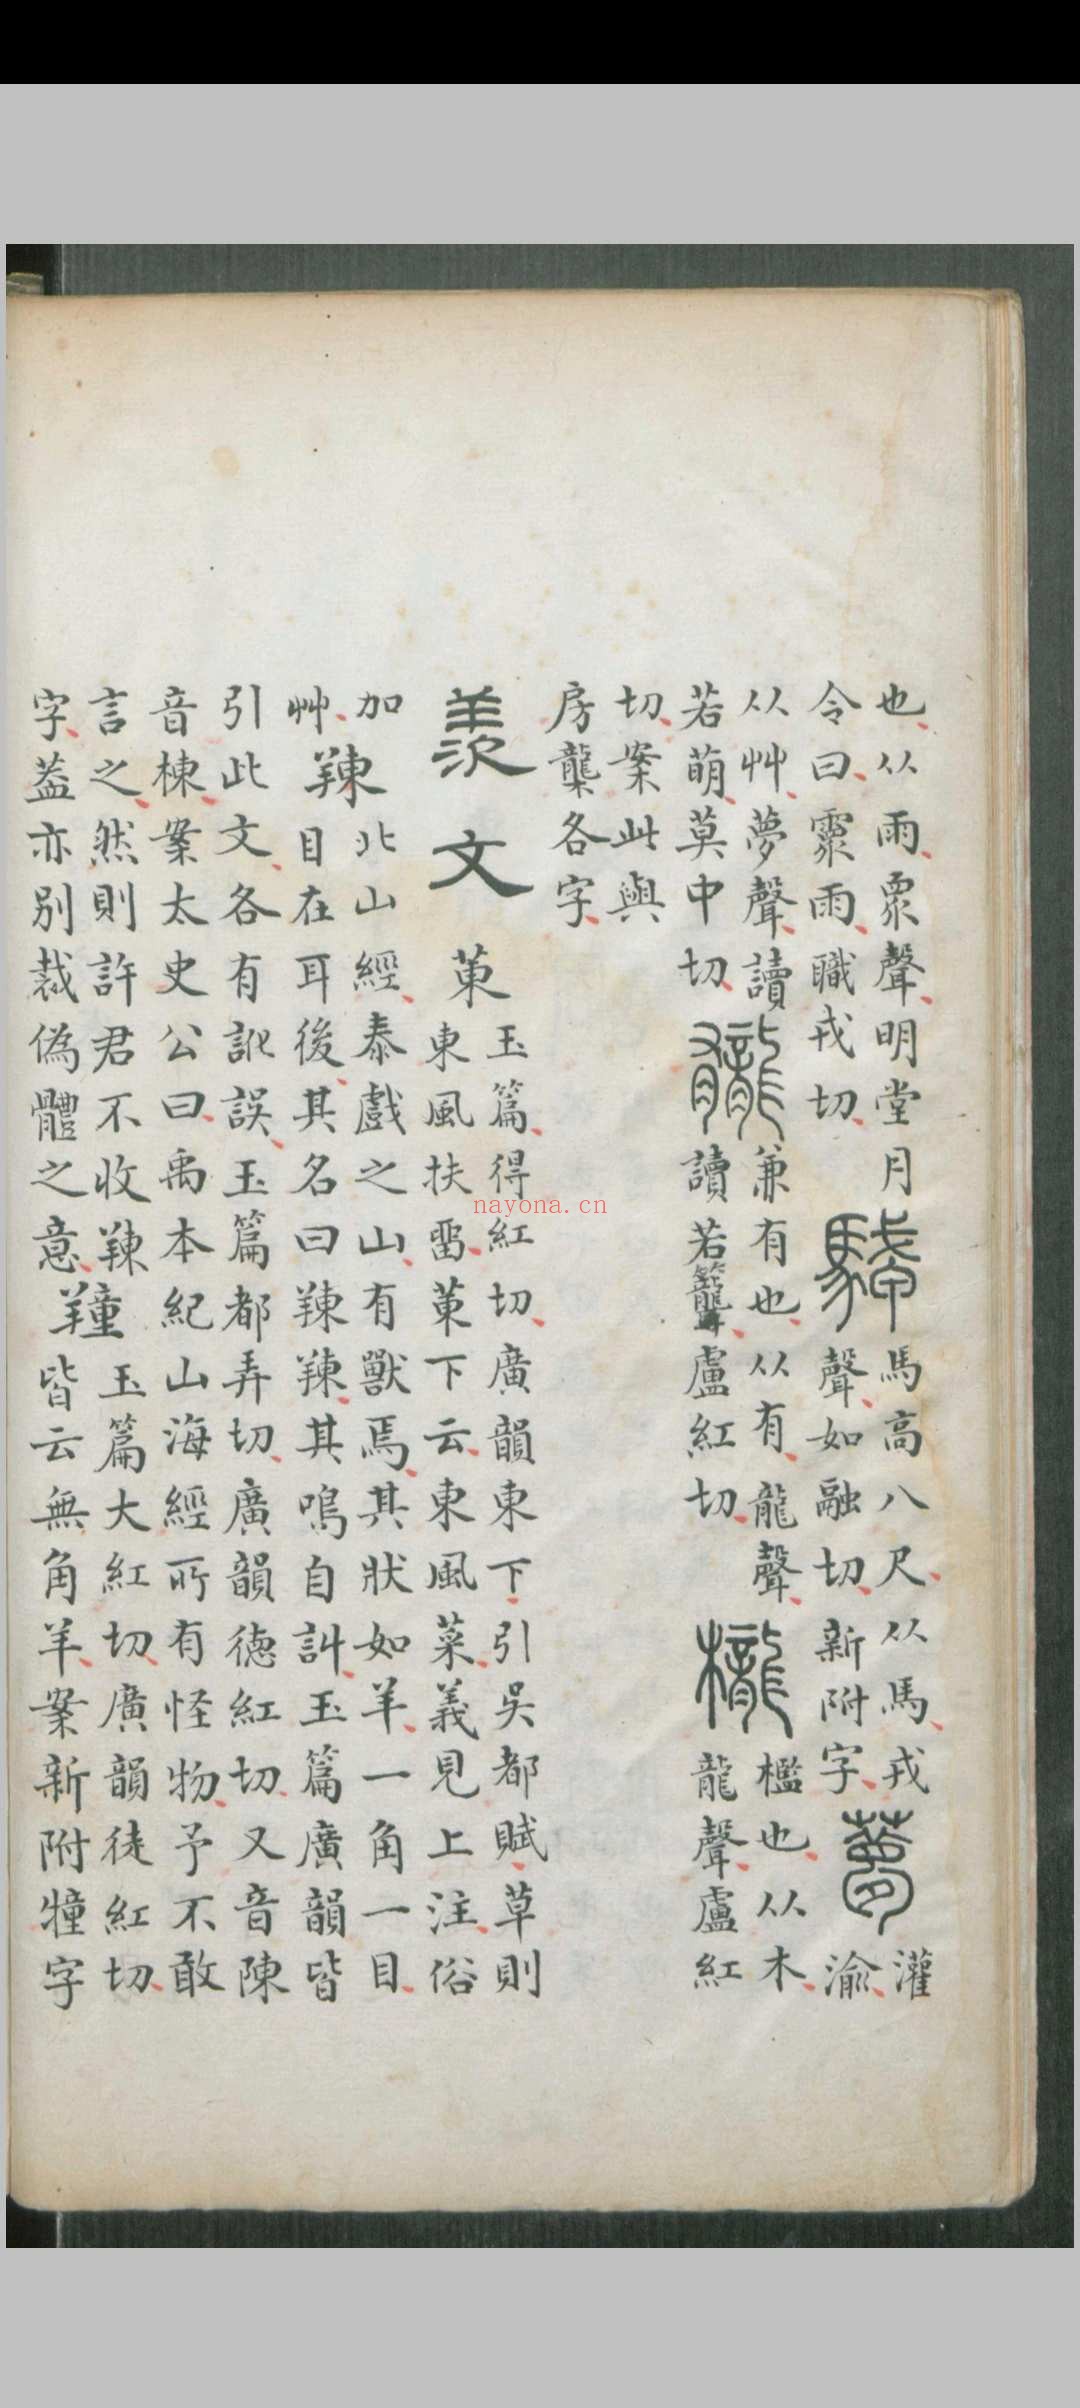 也从雨眾聲明堂月
令曰霥雨職戎切
䮵馬高八尺从馬戎
聲如融切新附字
夢灌渝
从艸夢聲讀
若萌莫中切
龓兼有也从有龍聲
讀若聾盧紅切
櫳檻也从木
龍聲盧紅
切案此與
房龒各字
羨文
菄玉篇得紅切廣韻東下引吳都賦草則
東風扶畱菄下云東風菜義見上注俗
加艸
䍶北山經泰戲之山有獸焉其狀如羊一角一目
目在耳後其名曰䍶䍶其鳴自訆玉篇廣韻皆
引此文各有訛誤玉篇都弄切廣韻德紅切又音陳
音棟案太史公曰禹本紀山海經所有怪物予不敢
言之然則許君不收䍶
字葢亦別裁偽體之意
羵玉篇大紅切廣韻徒紅切
皆云無角羊案新附犝字
nayona.cn